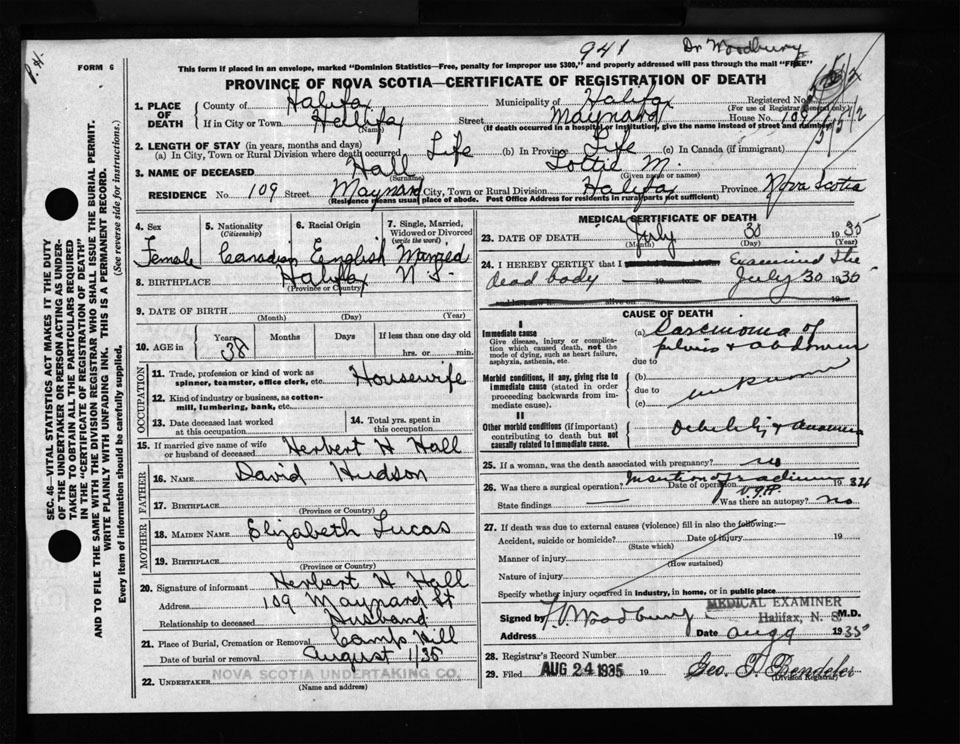 941 Dr Woodbury
P.H.
FORM 6
This form if placed in an envelope, marked "Dominion Statistics—Free, penalty for improper use $300," and properly addressed will pass through the mail "FREE"
PROVINCE OF NOVA SCOTIA—CERTIFICATE OF REGISTRATION OF DEATH
1. PLACE OF DEATH
County of Halifax Municipality of Halifax Registered No.
(For use of Registrar General only)
If in City or Town Halifax Street Maynard House No. 109
(Name) (If death occurred in a hospital or institution, give the name instead of street and number)
2. LENGTH OF STAY (in years, months and days)
(a) In City, Town or Rural Division where death occurred Life (b) In Province Life (c) In Canada (if immigrant)
3. NAME OF DECEASED Hall Lottie M.
(Surname) (Given name or names)
RESIDENCE No. 109 Street Maynard City, Town or Rural Division Halifax Province Nova Scotia
(Residence means usual place of abode. Post Office Address for residents in rural parts not sufficient)
SEC. 46—VITAL STATISTICS ACT MAKES IT THE DUTY
OF THE UNDERTAKER OR PERSON ACTING AS UNDER-
TAKER TO OBTAIN ALL THE PARTICULARS REQUIRED
IN THE "CERTIFICATE OF REGISTRATION OF DEATH"
AND TO FILE THE SAME WITH THE DIVISION REGISTRAR WHO SHALL ISSUE THE BURIAL PERMIT.
WRITE PLAINLY WITH UNFADING INK. THIS IS A PERMANENT RECORD.
Every item of information should be carefully supplied. (See reverse side for instructions.)
4. Sex 5. Nationality (Citizenship) 6. Racial Origin 7. Single, Married, Widowed or Divorced (write the word)
Female Canadian English Married
8. BIRTHPLACE Halifax N S.
(Province or Country)
9. DATE OF BIRTH
(Month) (Day) (Year)
10. AGE in Years Months Days If less than one day old
38 hrs. or min.
OCCUPATION
11. Trade, profession or kind of work as spinner, teamster, office clerk, etc. Housewife
12. Kind of industry or business, as cotton-mill, lumbering, bank, etc.
13. Date deceased last worked at this occupation 14. Total yrs. spent in this occupation
15. If married give name of wife or husband of deceased Herbert H Hall
FATHER
16. Name David Hudson
17. Birthplace
(Province or Country)
MOTHER
18. Maiden Name Elizabeth Lucas
19. Birthplace
(Province or Country)
20. Signature of informant Herbert H Hall
Address 109 Maynard St
Relationship to deceased Husband
21. Place of Burial, Cremation or Removal Camp Hill
Date of burial or removal August 1/35
22. Undertaker NOVA SCOTIA UNDERTAKING CO.
(Name and address)
MEDICAL CERTIFICATE OF DEATH
23. DATE OF DEATH July 30 1935
(Month) (Day) (Year)
24. I HEREBY CERTIFY that I Examined the
dead body July 30 1935
CAUSE OF DEATH
I
Immediate cause
Give disease, injury or complication which caused death, not the mode of dying, such as heart failure, asphyxia, asthenia, etc.
(a) Carcinoma of
pelvis & abdomen
due to
Morbid conditions, if any, giving rise to immediate cause (stated in order proceeding backwards from immediate cause).
(b)
due to unknown
(c)
II
Other morbid conditions (if important) contributing to death but not causally related to immediate cause.
Debility & anaemia
25. If a woman, was the death associated with pregnancy? no
26. Was there a surgical operation? Insertion of radium Date of operation 1934
V.G.H.
State findings Was there an autopsy? no
27. If death was due to external causes (violence) fill in also the following:—
Accident, suicide or homicide? Date of injury 19
(State which)
Manner of injury
(How sustained)
Nature of injury
Specify whether injury occurred in industry, in home, or in public place
MEDICAL EXAMINER
Halifax, N. S.
Signed by Woodbury M.D.
Address Date Aug 9 1935
28. Registrar's Record Number
29. Filed AUG 24 1935 19 Geo.
(Division Registrar)